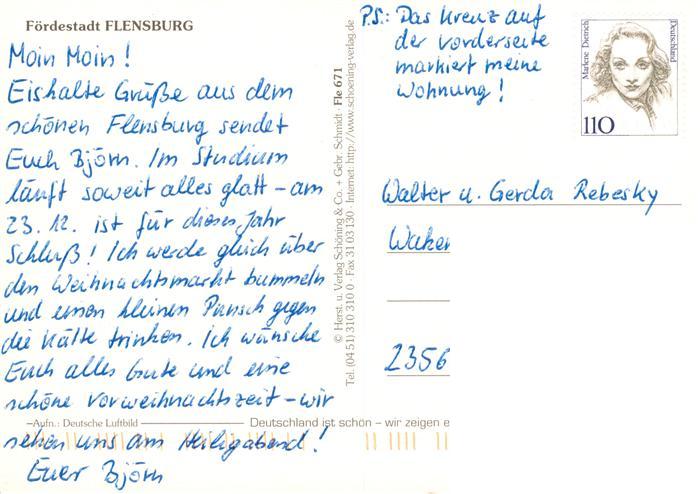 Fördestadt FLENSBURG
Moin Moin!
Eiskalte Grüße aus dem
schönen Flensburg sendet
Euch Björn. Im Studium
läuft soweit alles glatt – am
23.12. ist für dieses Jahr
Schluß! Ich werde gleich über
den Weihnachtsmarkt bummeln
und einen kleinen Punsch gegen
die Kälte trinken. Ich wünsche
Euch alles Gute und eine
schöne Vorweihnachtszeit – wir
sehen uns am Heiligabend!
Euer Björn
Aufn.: Deutsche Luftbild
Deutschland ist schön – wir zeigen e
© Herst. u. Verlag Schöning & Co. + Gebr. Schmidt · Fle 671
Tel. (04 51) 310 310 0 · Fax 31 03 130 · Internet: http://www.schoening-verlag.de
P.S.: Das Kreuz auf
der Vorderseite
markiert meine
Wohnung!
Marlene Dietrich
Deutschland
110
Walter u. Gerda Rebesky
2356